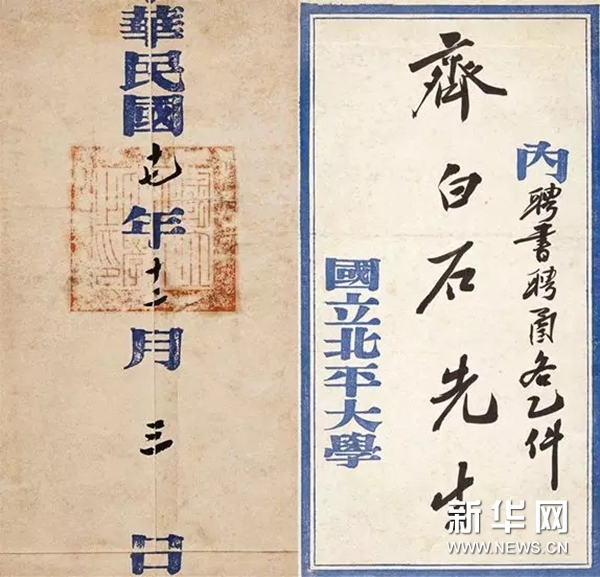 華民國十七年十二月三日
內聘書聘函各乙件
齊白石先生
國立北平大學
新华网
WWW.NEWS.CN